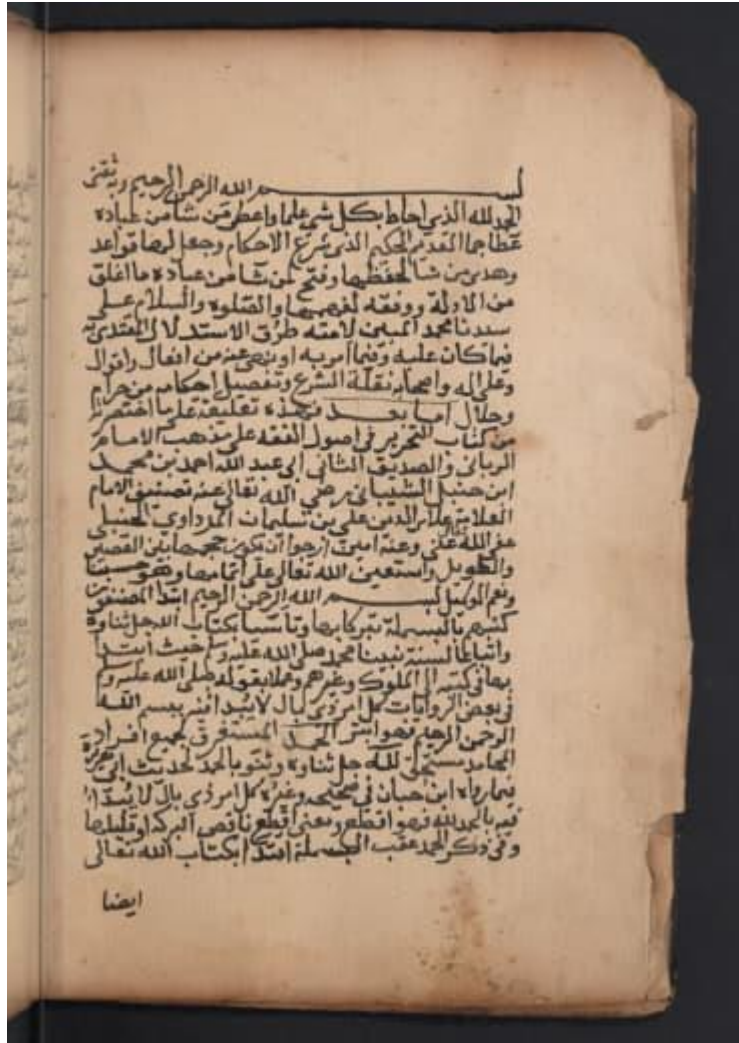 بسم الله الرحمن الرحيم وبه ثقتي
الحمد لله الذي احاط بكل شي علما واعطى من شا من عباده
عطا جما القديم الحكيم الذي شرع الاحكام وجعل لها قواعد
وهدى من شا لحفظها وفتح لمن شا من عباده ما اغلق
من الادلة ووفقه لفهمها والصلوة والسلام على
سيدنا محمد المبين لامته طرق الاستدلال المقتدى به
فيما كان عليه وفيما امر به او نهى عنه من افعال واقوال
وعلى اله واصحابه نقلة الشرع وتفصيل احكامه من حرام
وحلال اما بعد فهذه تعليقة على ما اختصرته
من كتاب التحرير في اصول الفقه على مذهب الامام
الرباني والصديق الثاني ابي عبد الله احمد بن محمد
ابن حنبل الشيباني رضي الله تعالى عنه تصنيف الامام
العلامة علاء الدين علي بن سليمان المرداوي الحنبلي
عفى الله عني وعنه امين ارجوا ان يكون حجمها بين القصير
والطويل واستعين الله تعالى على اتمامها وهو حسبنا
ونعم الوكيل بسم الله الرحمن الرحيم ابتدا المصنفون
كتبهم بالبسملة تبركا بها وتاسيا بكتاب الله جل ثناوه
واتباعا لسنة نبينا محمد صلى الله عليه وسلم حيث ابتدا
بها في كتبه الى الملوك وغيرهم وعملا بقوله صلى الله عليه وسلم
في بعض الروايات كل امر ذي بال لا يبدا فيه ببسم الله
الرحمن الرحيم فهو ابتر الحمد المستغرق لجميع افراد
المحامد مستحق لله جل ثناوه وثنو بالحمد لحديث ابي هريرة
فيما رواه ابن حبان في صحيحه وغيره كل امر ذي بال لا يبدا
فيه بالحمد لله فهو اقطع ومعنى اقطع ناقص البركة او قليلها
وفي ذكر الحمد عقب البسملة اقتدا بكتاب الله تعالى
ايضا